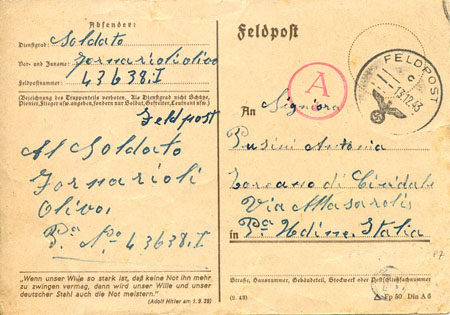 Absender:
Dienstgrad: Soldato
Vor- und Zuname: Fornarioli Olivo
Feldpostnummer: 43638.I
(Bezeichnung des Truppenteiles verboten. Als Dienstgrad nicht Schütze,
Pionier, Flieger usw. angeben, sondern nur Soldat, Gefreiter, Leutnant usw.)
Feldpost
Al Soldato
Fornarioli
Olivo.
Pª Nº 43638.I
"Wenn unser Wille so stark ist, daß keine Not ihn mehr
zu zwingen vermag, dann wird unser Wille und unser
deutscher Stahl auch die Not meistern."
(Adolf Hitler am 1. 9. 39)
Feldpost
A
FELDPOST
c
13.12.43
An Signiora
Pusini Antonia
Torreano di Cividale
Via Masarolis
in Pª Udine, Italia
P7
Straße, Hausnummer, Gebäudeteil, Stockwerk oder Postschließfachnummer
(2. 43)
Fp 50 Din A 6